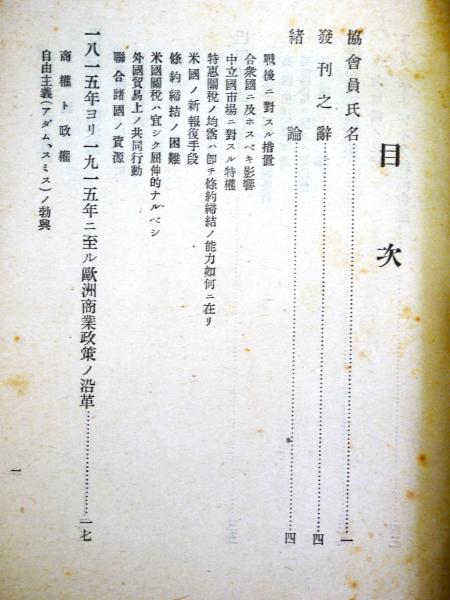 目次
協會員氏名……一
發刊之辭……四
緒論……四
戰後ニ對スル措置
合衆國ニ及ホスベキ影響
中立國市場ニ對スル特權
特惠關稅ノ均霑ハ卽チ條約締結ノ能力如何ニ在リ
米國ノ新報復手段
條約締結ノ困難
米國關稅ハ宜シク屈伸的ナルベシ
外國貿易上ノ共同行動
聯合諸國ノ資源
一八一五年ヨリ一九一五年ニ至ル歐洲商業政策ノ沿革……一七
商權ト政權
自由主義(アダム、スミス)ノ勃興
一